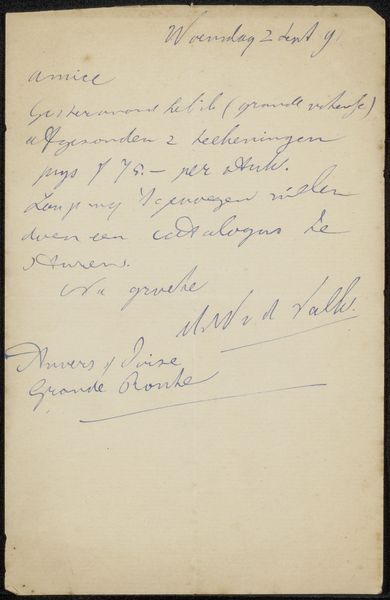 Woensdag 2 Sept 91
Amice
Gisteravond heb ik (grande vitesse)
afgezonden 2 teekeningen
prijs f 75.- per stuk.
Zou je mij 't genoegen willen
doen een catalogus te
sturen.
Na groete
M W v d Valk.
Anvers s/ Oise
Grande Route